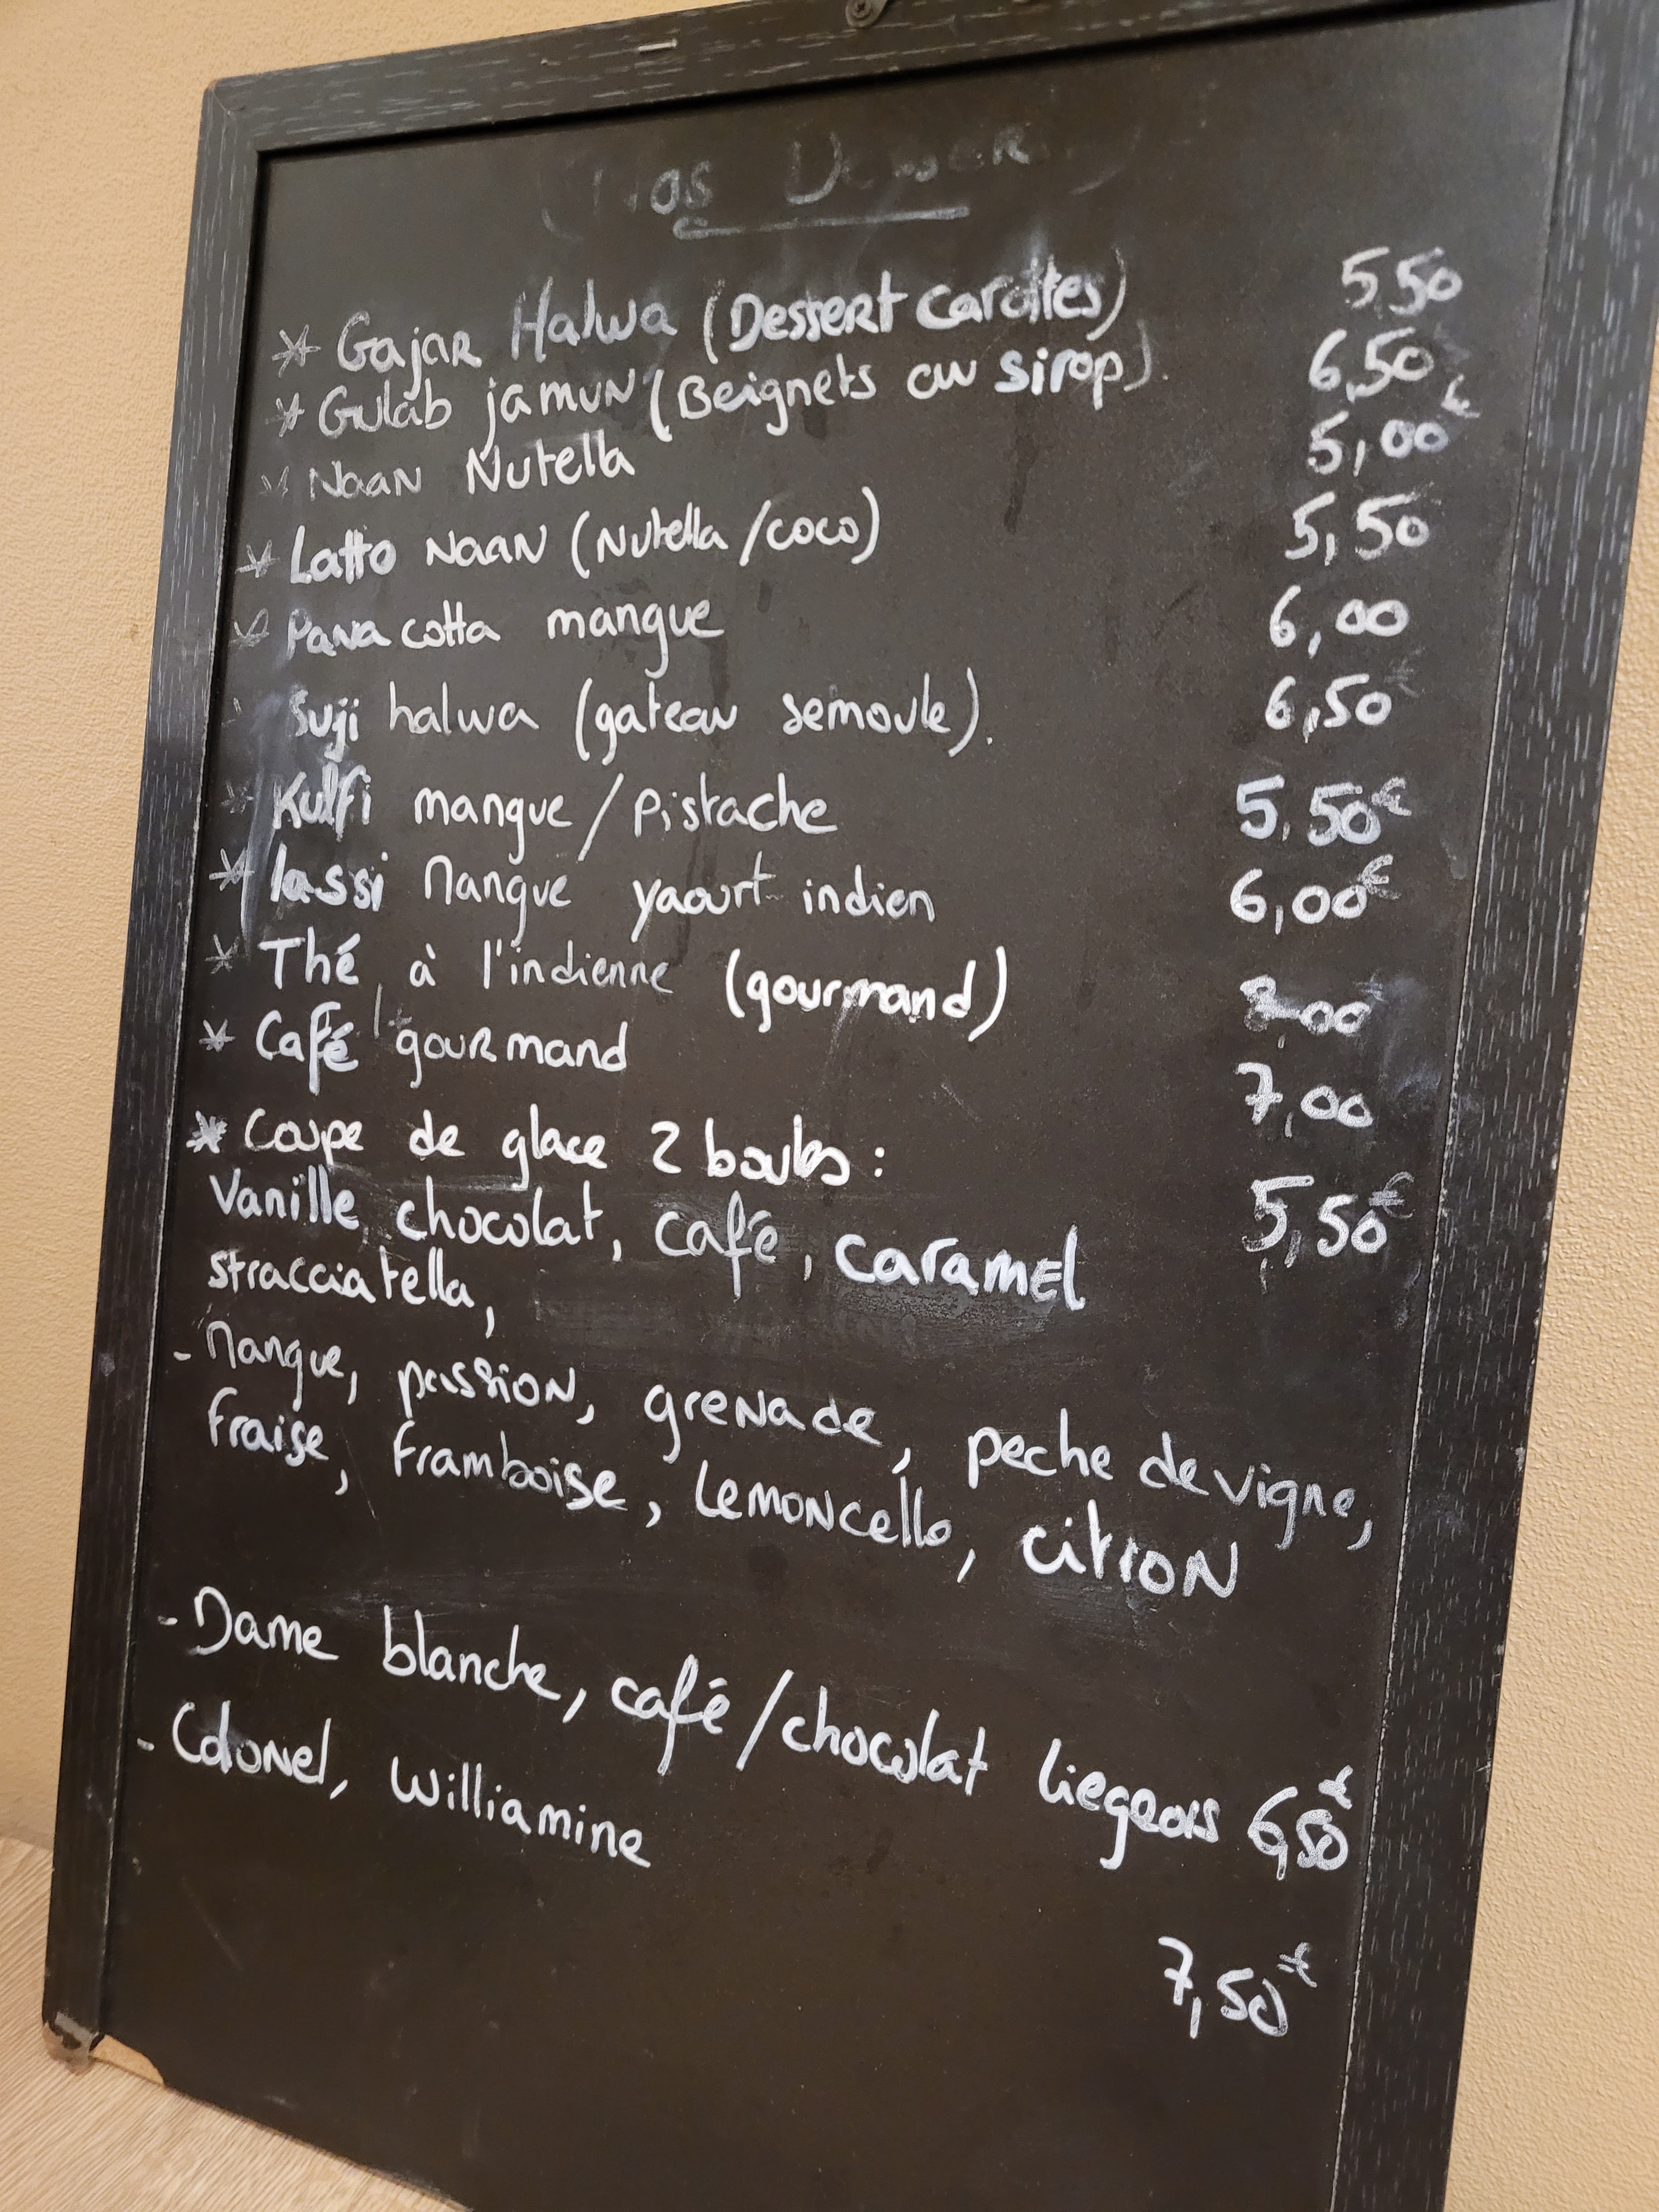 Nos Dessers
* Gajar Halwa (Dessert carottes) 5,50
* Gulab jamun (Beignets au sirop). 6,50
* Naan Nutella 5,00€
* Latto Naan (Nutella/coco) 5,50
* Pana cotta mangue 6,00
Suji halwa (gateau semoule). 6,50
* Kulfi mangue/Pistache 5,50€
* lassi Mangue yaourt indien 6,00€
* Thé à l'indienne (gourmand) 8,00
* Café gourmand 7,00
* Coupe de glace 2 boules : 5,50€
Vanille, chocolat, café, caramel
stracciatella,
- Mangue, passion, grenade, peche de vigne,
fraise, framboise, Lemoncello, citron
- Dame blanche, café/chocolat liegeois 6,50€
- Colonel, Williamine
7,50€